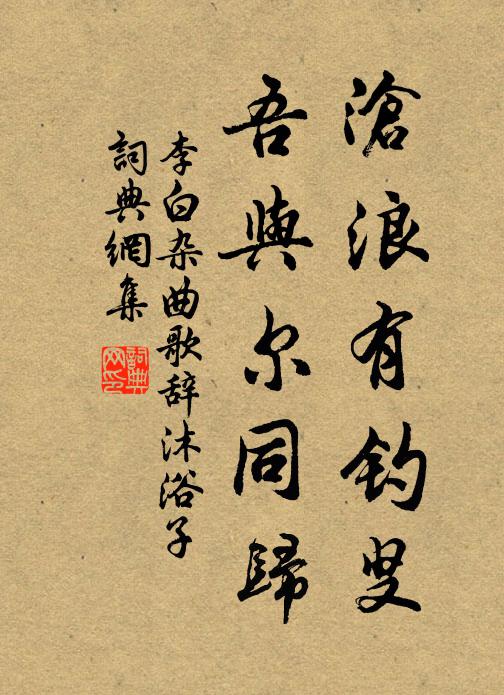 滄浪有釣叟
吾與尔同歸
李白杂曲歌辞沐浴子
詞典網集
詞典网印